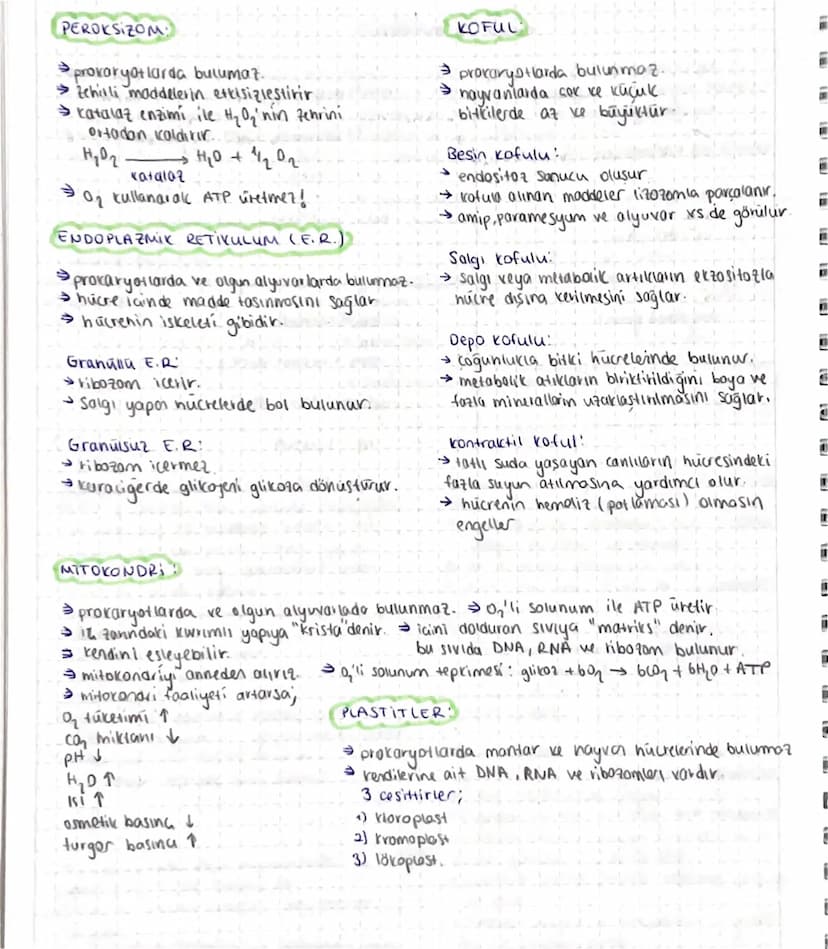 PEROKSİZOM:
→ prokaryotlarda bulumaz.
→ zehirli maddelerin etkisizleştirir
→ katalaz enzimi ile H₂O₂'nin zehrini
ortadan kaldırır.
H₂O₂ → H₂O + 1/2 O₂
katalaz
→ O₂ kullanarak ATP üretmez!
ENDOPLAZMİK RETİKULUM (E.R.)
→ prokaryotlarda ve olgun alyuvarlarda bulunmaz.
→ hücre içinde madde taşınmasını sağlar
→ hücrenin iskeleti gibidir.
Granüllü E.R:
→ ribozom içerir.
→ Salgı yapan hücrelerde bol bulunur.
Granülsüz E.R:
→ ribozom içermez
→ karaciğerde glikojeni glikoza dönüştürür.
KOFUL:
→ prokaryotlarda bulunmaz.
→ hayvanlarda çok ve küçük
bitkilerde az ve büyüktür.
Besin kofulu:
→ endositoz sonucu oluşur.
→ kofula alınan maddeler lizozomla parçalanır.
→ amip, paramesyum ve alyuvar xs.de görülür
Salgı kofulu:
→ salgı veya metabolik artıkların ekzositozla
hücre dışına verilmesini sağlar.
Depo kofulu:
→ çoğunlukla bitki hücreleinde bulunur.
→ metabolik atıkların biriktirildiğini boya ve
fazla minerallarin uzaklaştırılmasını sağlar.
kontraktil koful:
→ tatlı suda yaşayan canlıların hücresindeki
fazla suyun atılmasına yardımcı olur.
→ hücrenin hemoliz (patlaması) olmasın
engeller
MİTOKONDRİ:
→ prokaryotlarda ve olgun alyuvarlada bulunmaz. → O₂'li solunum ile ATP üretir
→ iç zarındaki kıvrımlı yapıya "krista" denir. → içini dolduran sıvıya "matriks" denir.
bu sıvıda DNA, RNA ve ribozom bulunur.
→ kendini eşleyebilir.
→ mitokondriyi anneden alırız. → O₂'li solunum tepkimesi: glikoz + 6O₂ → 6CO₂ + 6H₂O + ATP
→ mitokondri faaliyeti artarsa;
O₂ tüketimi ↑
CO₂ miktarı ↓
pH ↓
H₂O ↑
ısı ↑
osmotik basınç ↓
turgor basıncı ↑
PLASTİTLER:
→ prokaryotlarda mantar ve hayvan hücrelerinde bulunmaz
→ kendilerine ait DNA, RNA ve ribozomları vardır.
3 çeşittirler;
1) kloroplast
2) kromoplast
3) lökoplast.